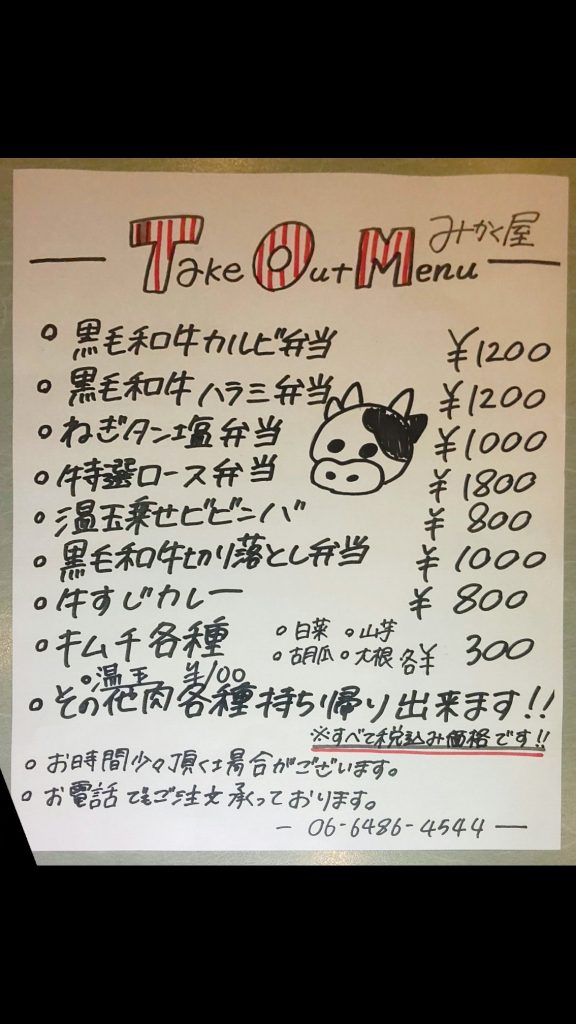 みかく屋
Take Out Menu
○ 黒毛和牛カルビ弁当 ¥1200
○ 黒毛和牛ハラミ弁当 ¥1200
○ ねぎタン塩弁当 ¥1000
○ 特選ロース弁当 ¥1800
○ 温玉乗せビビンバ ¥800
○ 黒毛和牛切り落とし弁当 ¥1000
○ 牛すじカレー ¥800
○ キムチ各種 ○白菜 ○山芋
○胡瓜 ○大根 各¥300
○温玉 ¥100
○ その他肉各種持ち帰り出来ます!!
※すべて税込み価格です!!
○ お時間少々頂く場合がございます。
○ お電話でもご注文承っております。
― 06-6486-4544 ―